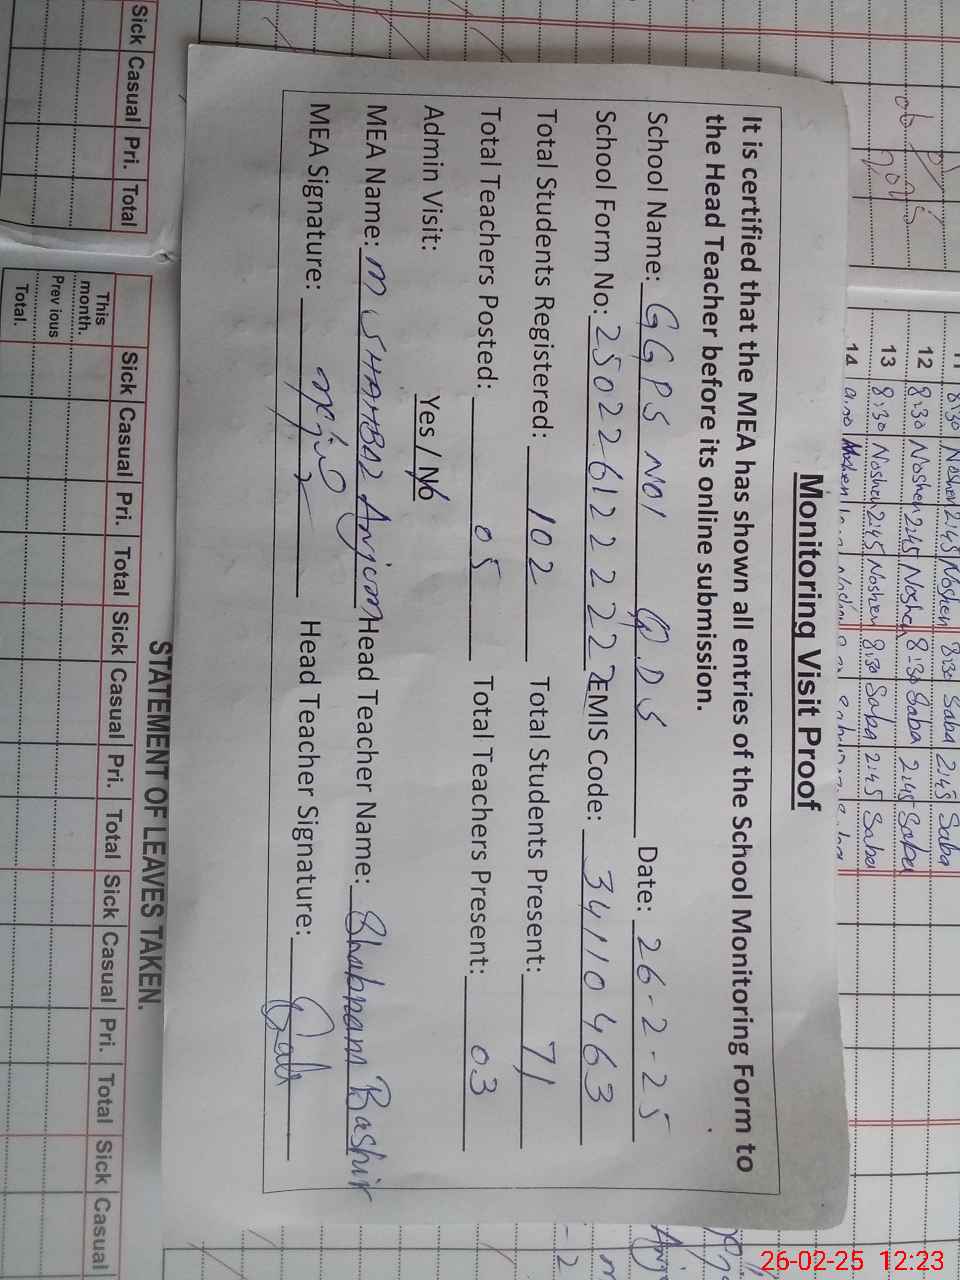 Monitoring Visit Proof
It is certified that the MEA has shown all entries of the School Monitoring Form to
the Head Teacher before its online submission.
School Name: GGPS NO1 Q.D.S Date: 26-2-25
School Form No: 25022612 2 2 22 EMIS Code: 34110463
Total Students Registered: 102 Total Students Present: 71
Total Teachers Posted: 05 Total Teachers Present: 03
Admin Visit: Yes / No
MEA Name: M SHAHBAZ Anjum Head Teacher Name: Shabnam Bashir
MEA Signature: Head Teacher Signature:
11 8:30 Noshen 2:45 Noshen 8:30 Saba 2:45 Saba
12 8:30 Noshen 2:45 Noshen 8:30 Saba 2:45 Saba
13 8:30 Noshen 2:45 Noshen 8:30 Saba 2:45 Saba
14
STATEMENT OF LEAVES TAKEN.
Sick Casual Pri. Total
Sick Casual Pri. Total Sick Casual Pri. Total Sick Casual Pri. Total Sick Casual
This
month.
Previous
Total.
26-02-25 12:23